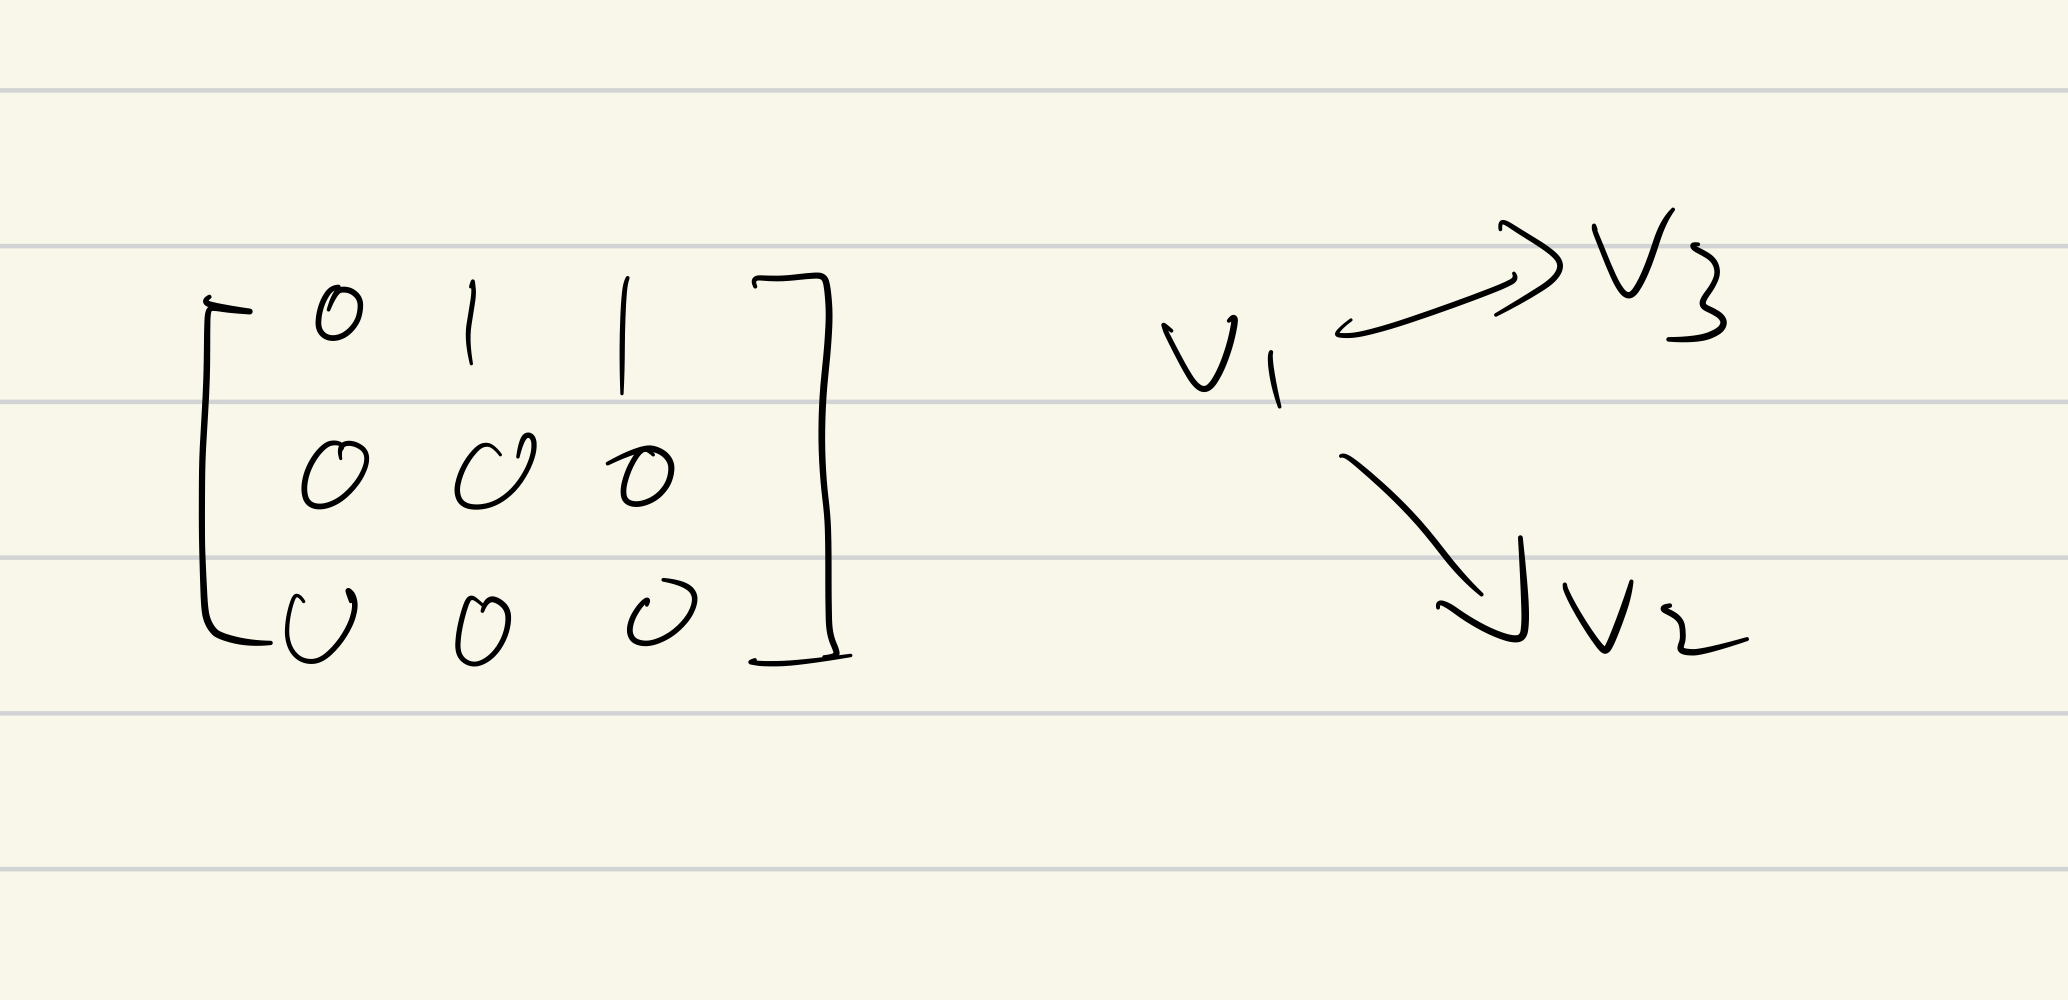 0 1 1
0 0 0
0 0 0
V3
V1
V2